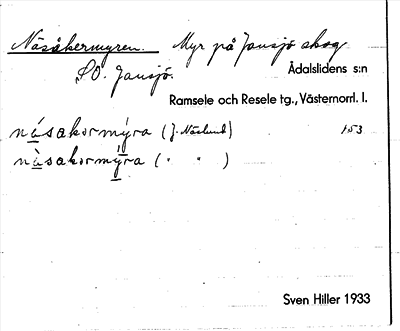 Näsåkermyren. Myr på Jansjö skog
SO. Jansjö.
Ådalslidens s:n
Ramsele och Resele tg., Västernorrl. l.
násakərmýra (J. Näslund) 153
nàsakərmy̌ra ( " " )
Sven Hiller 1933